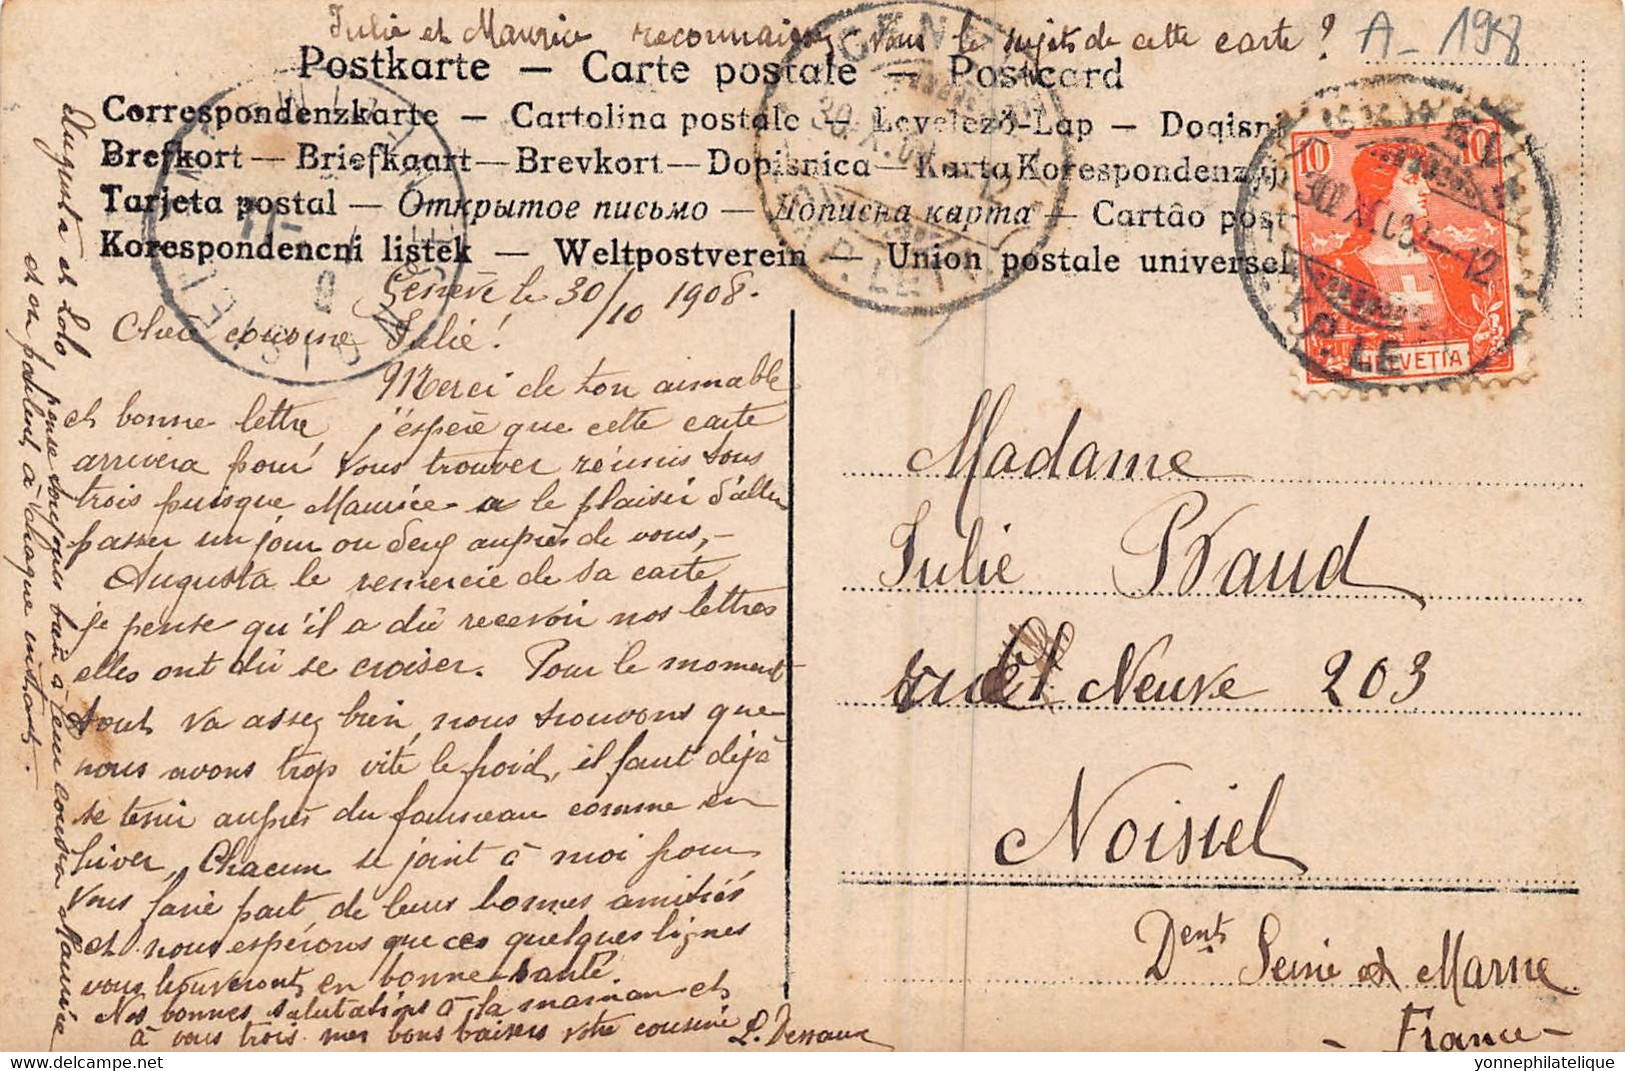 Julie et Maurice reconnaissez-vous le sujets de cette carte ?
A-198
Postkarte – Carte postale – Postcard
Correspondenzkarte – Cartolina postale – Levelező-Lap – Doqisni
Brefkort – Briefkaart – Brevkort – Dopisnica – Karta Korespondenzij
Tarjeta postal – Открытое письмо – Дописна карта – Cartão post-
Korespondencni listek – Weltpostverein – Union postale universel
GENÈVE
30.X.08
EXP. LETT.
10 10
HELVETIA
30.X.08–12
EXP. LE
Genève le 30/10 1908.
Chère cousine Julie!
Merci de ton aimable
et bonne lettre, j'espère que cette carte
arrivera pour vous trouver réunis tous
trois puisque Maurice a le plaisir d'aller
passer un jour ou deux auprès de vous,–
Augusta le remercie de sa carte
je pense qu'il a dû recevoir nos lettres
elles ont dû se croiser. Pour le moment
tout va assez bien, nous trouvons que
nous avons trop vite le froid, il faut déjà
se tenir auprès du fourneau comme en
hiver, Chacun se joint à moi pour
vous faire part de leur bonnes amitiés
et nous espérons que ces quelques lignes
vous trouveront en bonne santé.
Nos bonnes salutations à la maman et
à vous trois mes bons baisers votre cousine L. Dessaux
Augusta et Lolo pense toujours bien à leur cousin Maurice
et en parlent à chaque instant.
Madame
Julie Vaud
Neuve 203
Noisiel
Dent Seine et Marne
– France –
yonnephilatelique